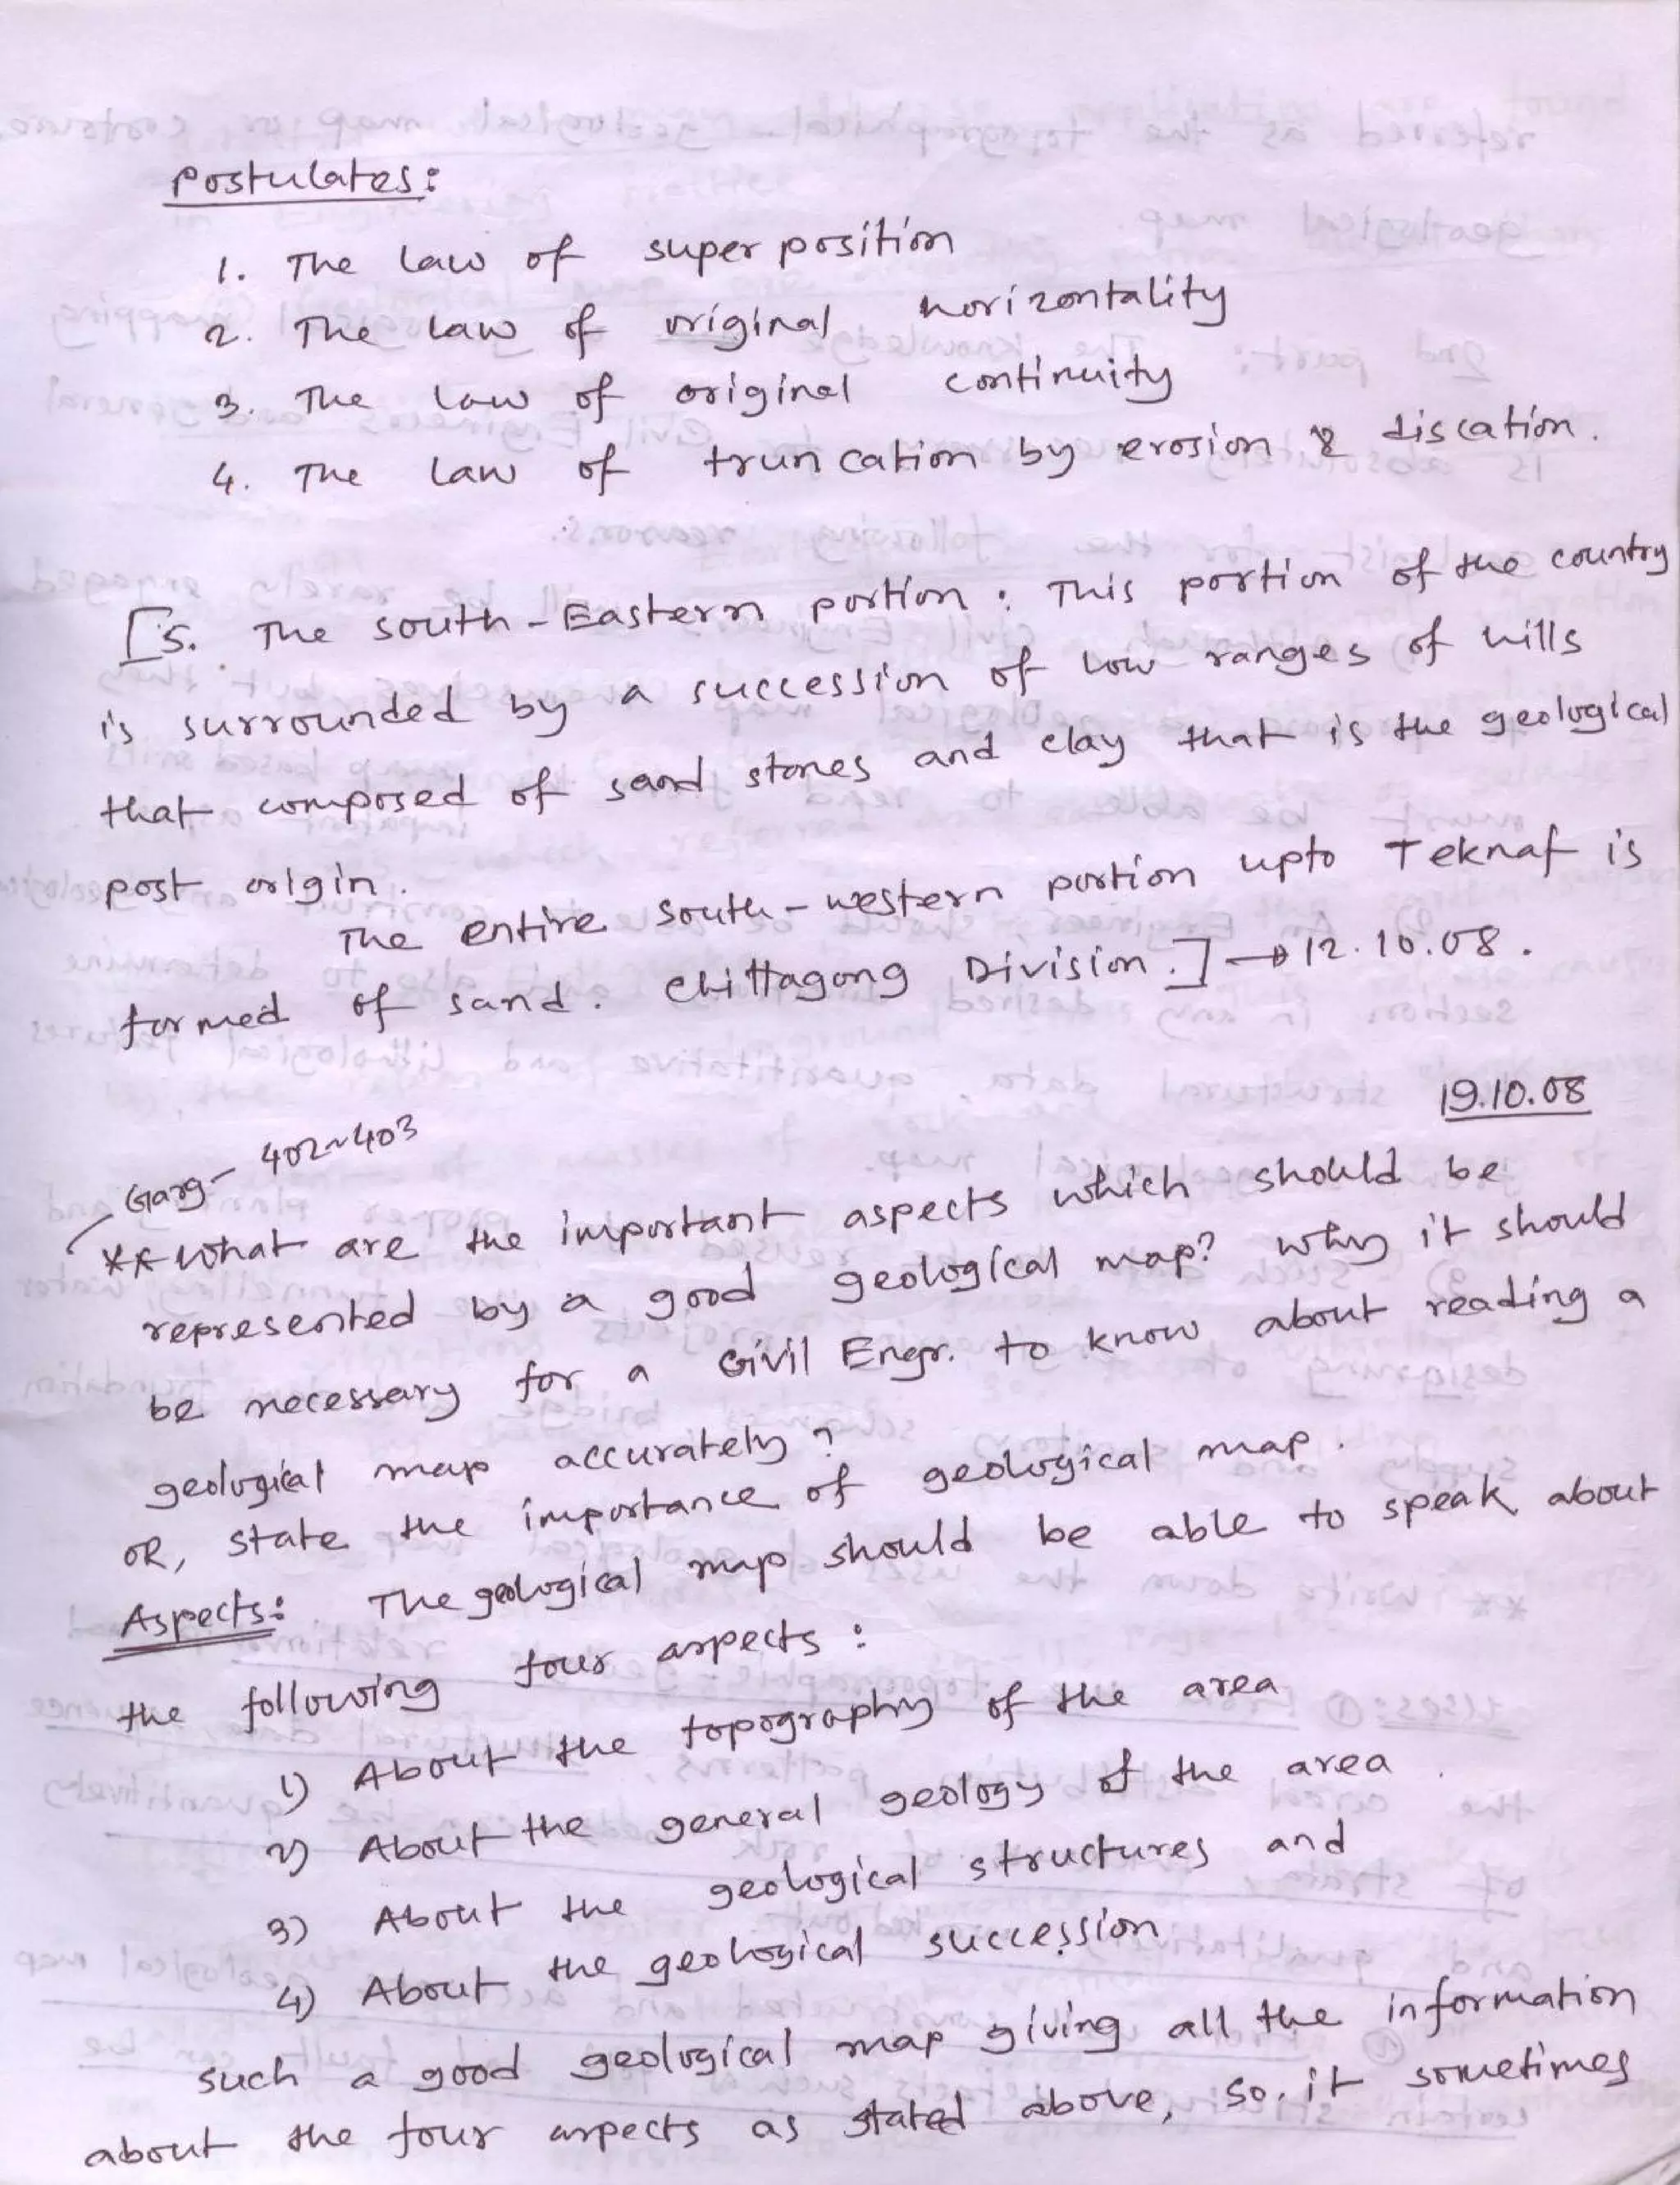 Postulates:
1. The law of super position
2. The law of original horizontality
3. The law of original continuity
4. The law of truncation by erosion & discation.
[5. The south-Eastern portion: This portion of the country
is surrounded by a succession of low ranges of hills
that composed of sand stones and clay that is the geological
post origin.
The entire south-western portion upto Teknaf is
formed of sand. Chittagong Division.] → 12.10.08.
19.10.08
Garg- 402~403
** What are the important aspects which should be
represented by a good geological map? Why it should
be necessary for a Civil Engr. to know about reading a
geological map accurately?
OR, State the importance of geological map.
Aspects: The geological map should be able to speak about
the following four aspects:
1) About the topography of the area
2) About the general geology of the area
3) About the geological structures and
4) About the geological succession
such a good geological map giving all the information
about the four aspects as stated above, so, it sometimes